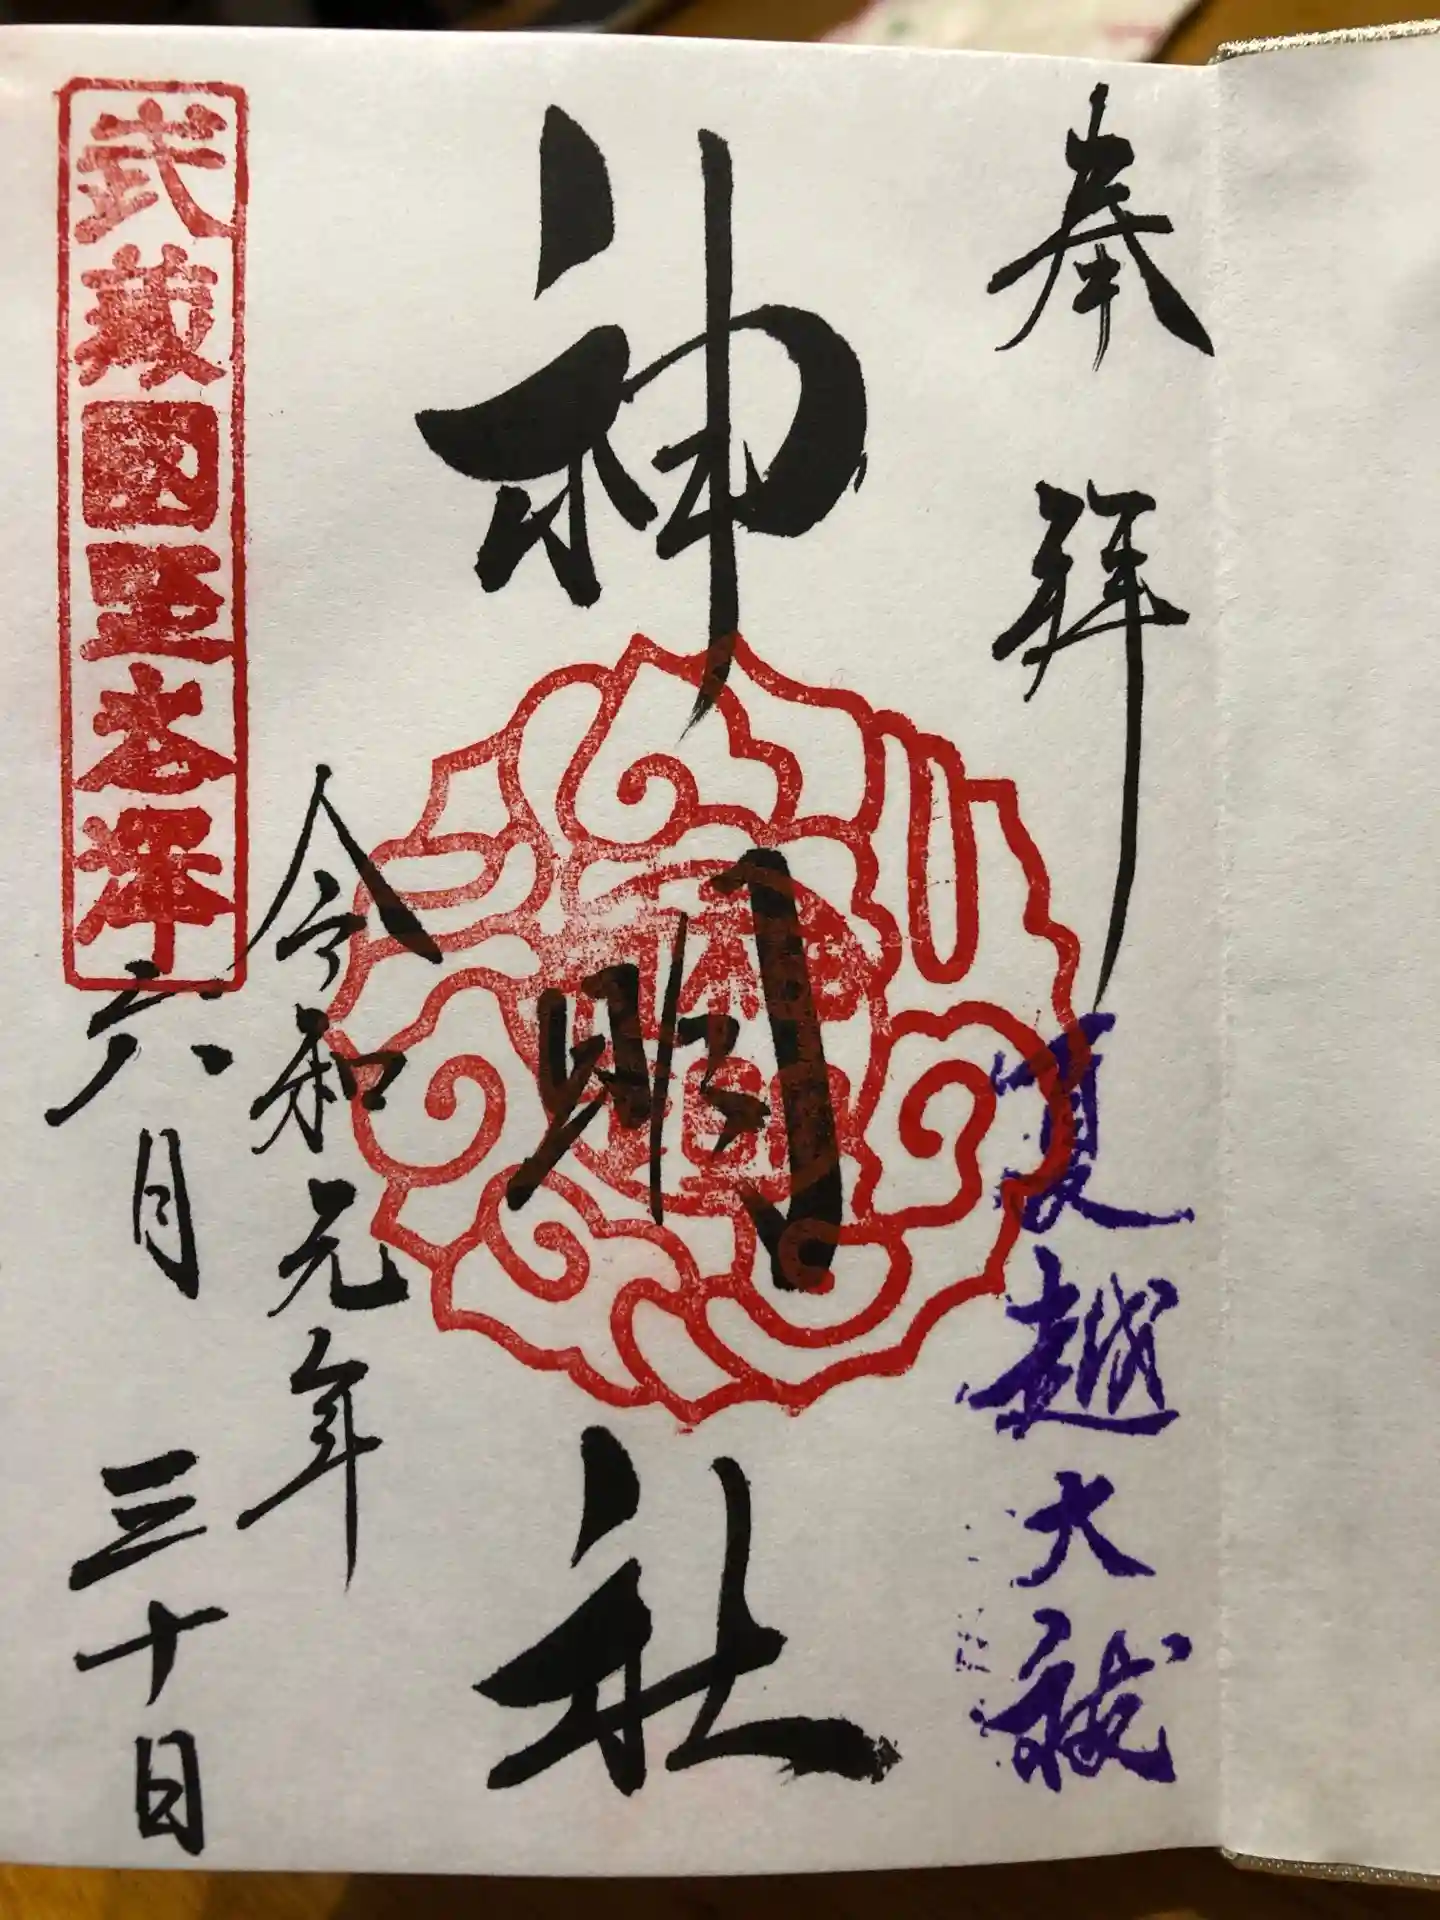 奉拝
夏越大祓
神明社
令和元年
六月三十日
武蔵國野老澤